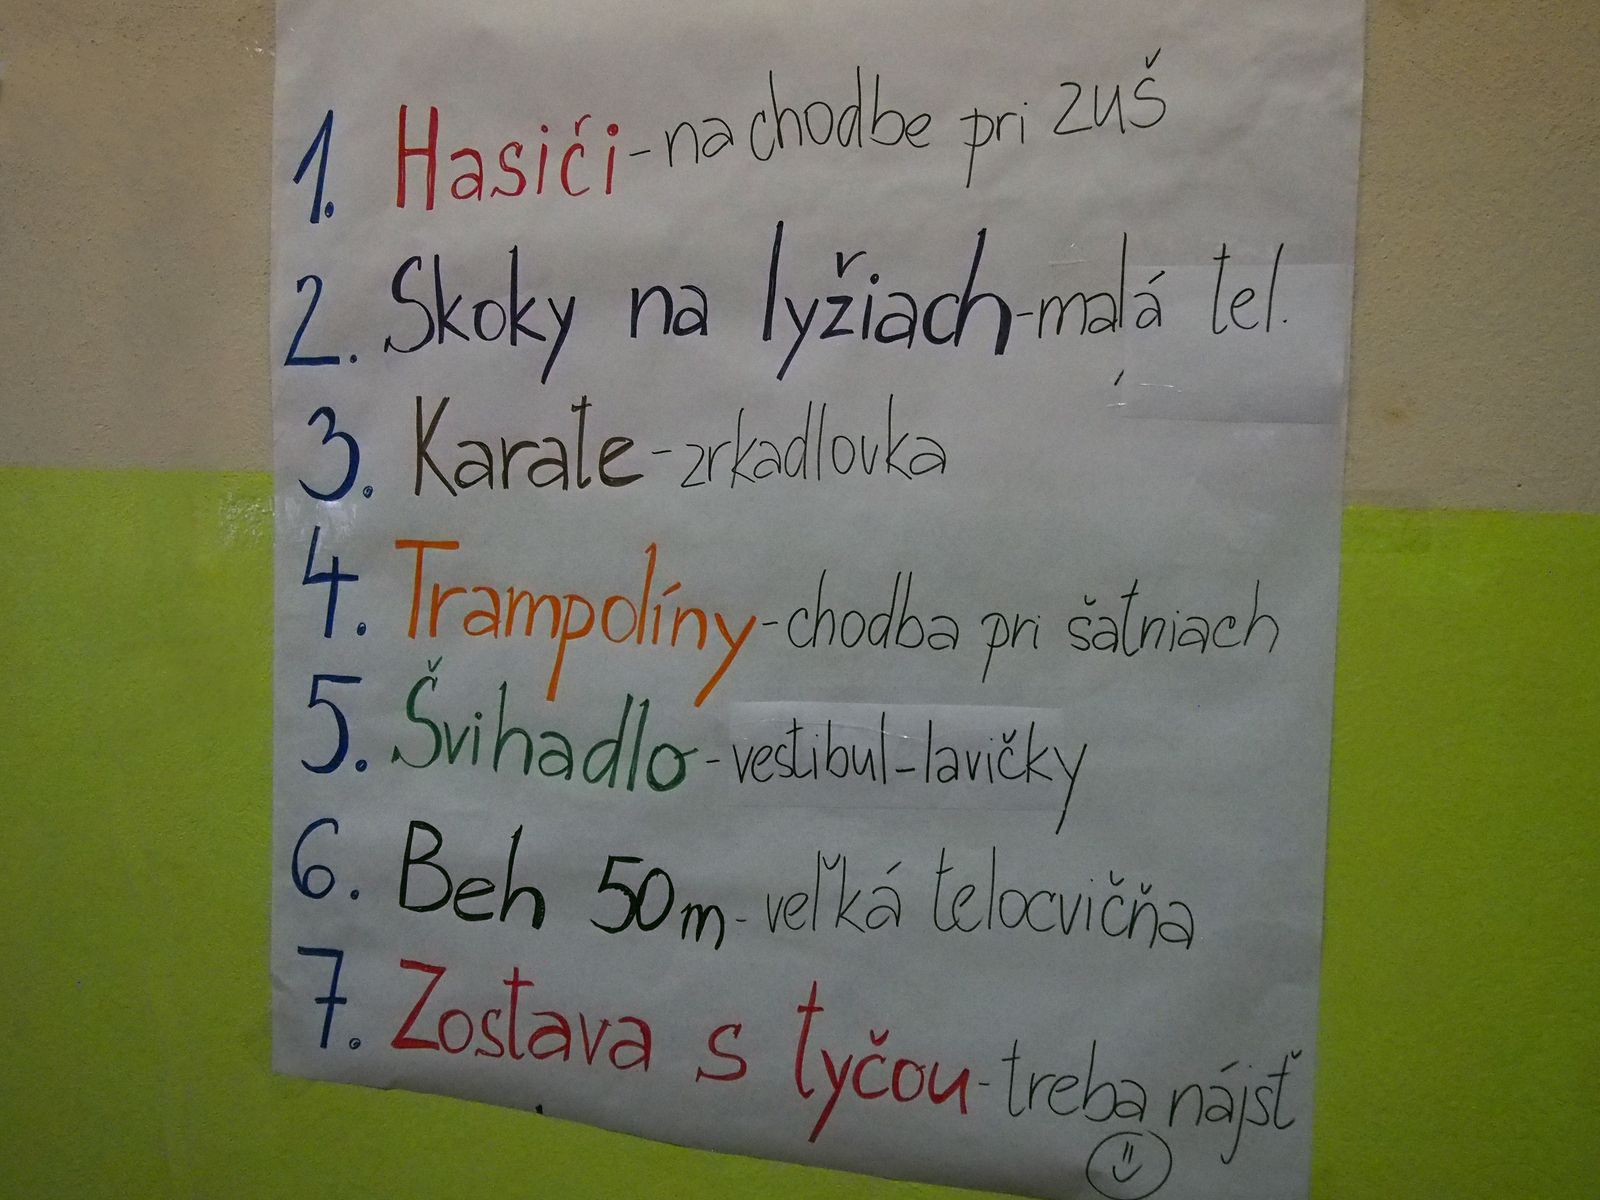 1. Hasiči - na chodbe pri ZUŠ
2. Skoky na lyžiach - malá tel.
3. Karate - zrkadlovka
4. Trampolíny - chodba pri šatniach
5. Švihadlo - vestibul - lavičky
6. Beh 50m - veľká telocvičňa
7. Zostava s tyčou - treba nájsť